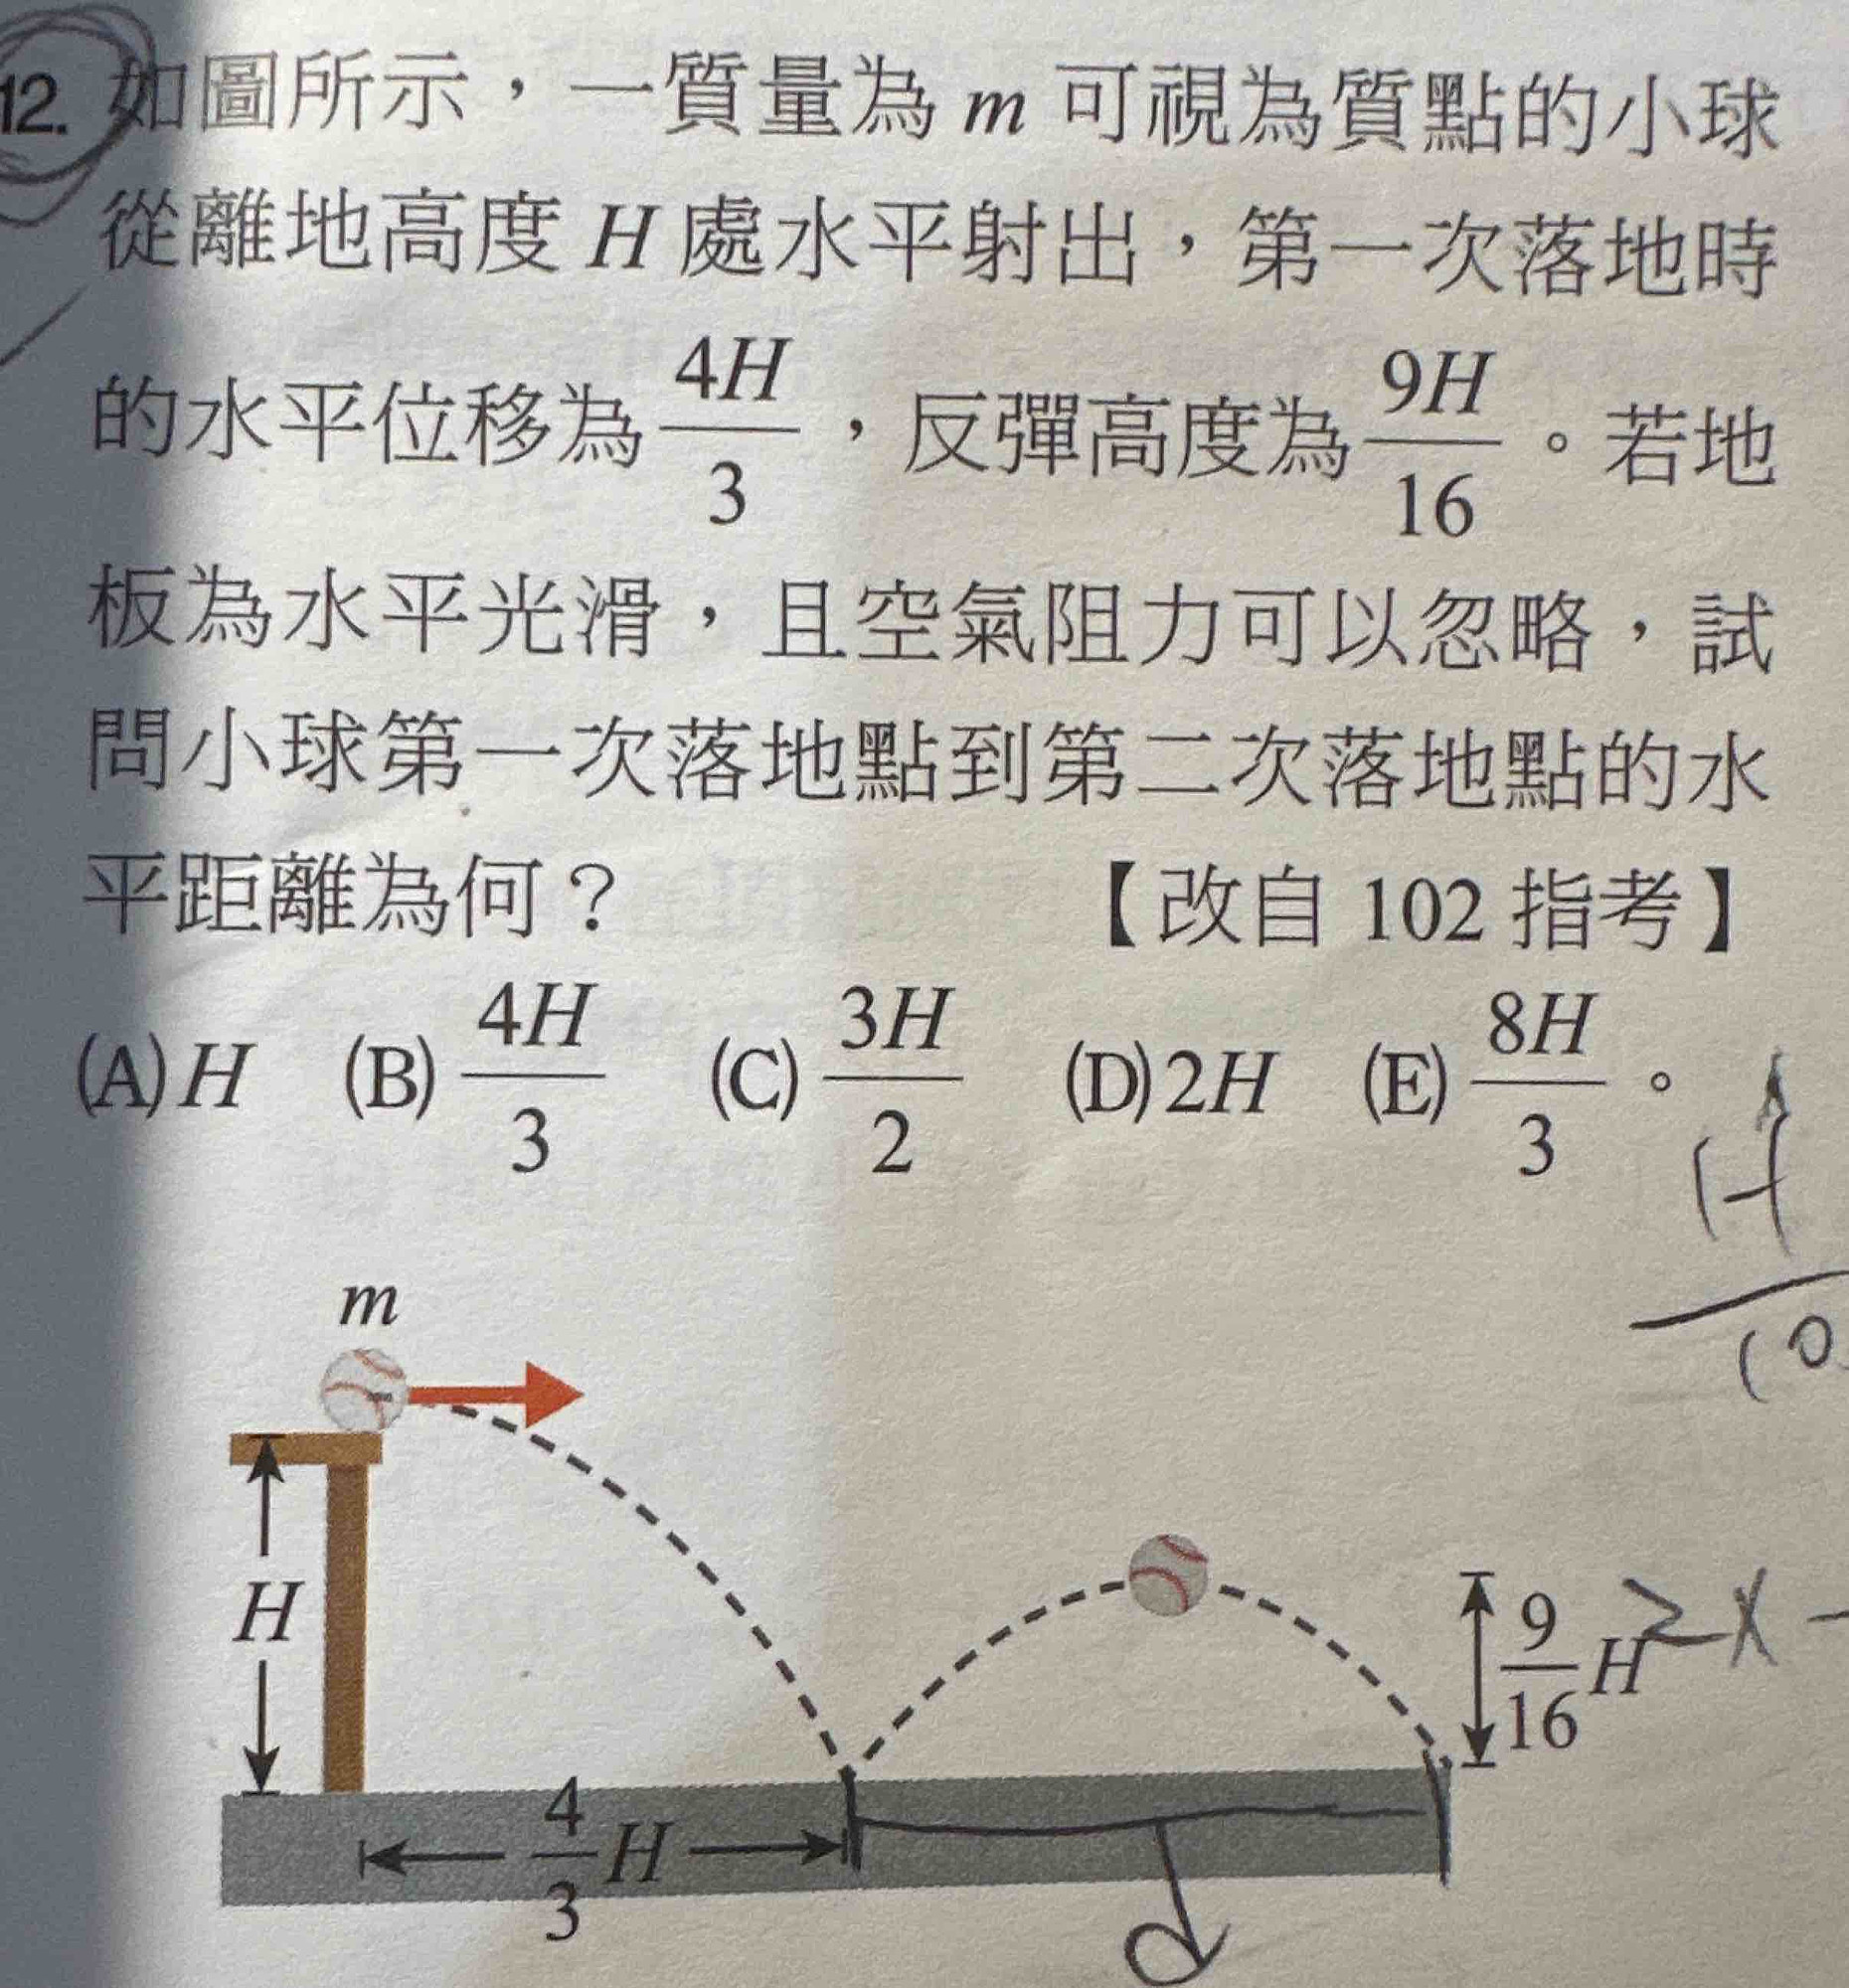 12. 如圖所示，一質量為 m 可視為質點的小球
從離地高度 H 處水平射出，第一次落地時
的水平位移為 4H/3，反彈高度為 9H/16。若地
板為水平光滑，且空氣阻力可以忽略，試
問小球第一次落地點到第二次落地點的水
平距離為何？ 【改自 102 指考】
(A) H (B) 4H/3 (C) 3H/2 (D) 2H (E) 8H/3。
H
10
m
H
9/16 H
2x-
4/3 H
d